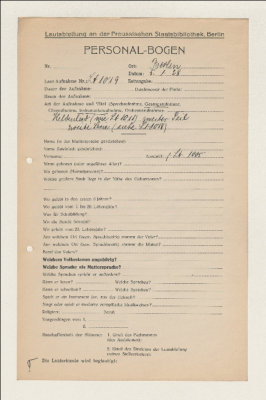 Lautabteilung an der Preussischen Staatsbibliothek, Berlin
PERSONAL-BOGEN
Nr. Ort: Berlin
Datum: 2. 1. 28
Laut-Aufnahme Nr.: LA 1019 Zeitangabe:
Dauer der Aufnahme: Durchmesser der Platte:
Raum der Aufnahme:
Art der Aufnahme und Titel (Sprechaufnahme, Gesangsaufnahme,
Choraufnahme, Instrumentenaufnahme, Orchesteraufnahme):
zweiter Teil
Name (in der Muttersprache geschrieben):
Name (lateinisch geschrieben):
Vorname:
Wann geboren (oder ungefähres Alter)?
Wo geboren (Heimatprovinz)?
Welche größere Stadt liegt in der Nähe des Geburtsortes?
Wo gelebt in den ersten 6 Jahren?
Wo gelebt vom 7. bis 20. Lebensjahr?
Was für Schulbildung?
Wo die Schule besucht?
Wo gelebt vom 20. Lebensjahr?
Aus welchem Ort (Kreis, Sprachbezirk) stammt der Vater?
Aus welchem Ort (Kreis, Sprachbezirk) stammt die Mutter?
Beruf des Vaters?
Welchem Volksstamm angehörig?
Welche Sprache als Muttersprache?
Welche Sprachen spricht er außerdem?
Kann er lesen? Welche Sprachen?
Kann er schreiben? Welche Sprachen?
Spielt er ein Instrument (ev. aus der Heimat)?
Singt oder spielt er moderne europäische Musikweisen?
Religion: Beruf:
Vorgeschlagen von: 1.
2.
Beschaffenheit der Stimme: 1. Urteil des Fachmannes
(des Assistenten)
2. Urteil des Direktors der Lautabteilung
(seines Stellvertreters)
Die Lauturkunde wird beglaubigt: